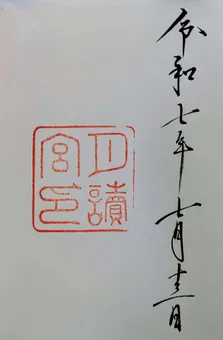 令和七年七月十三日
月讀宮印